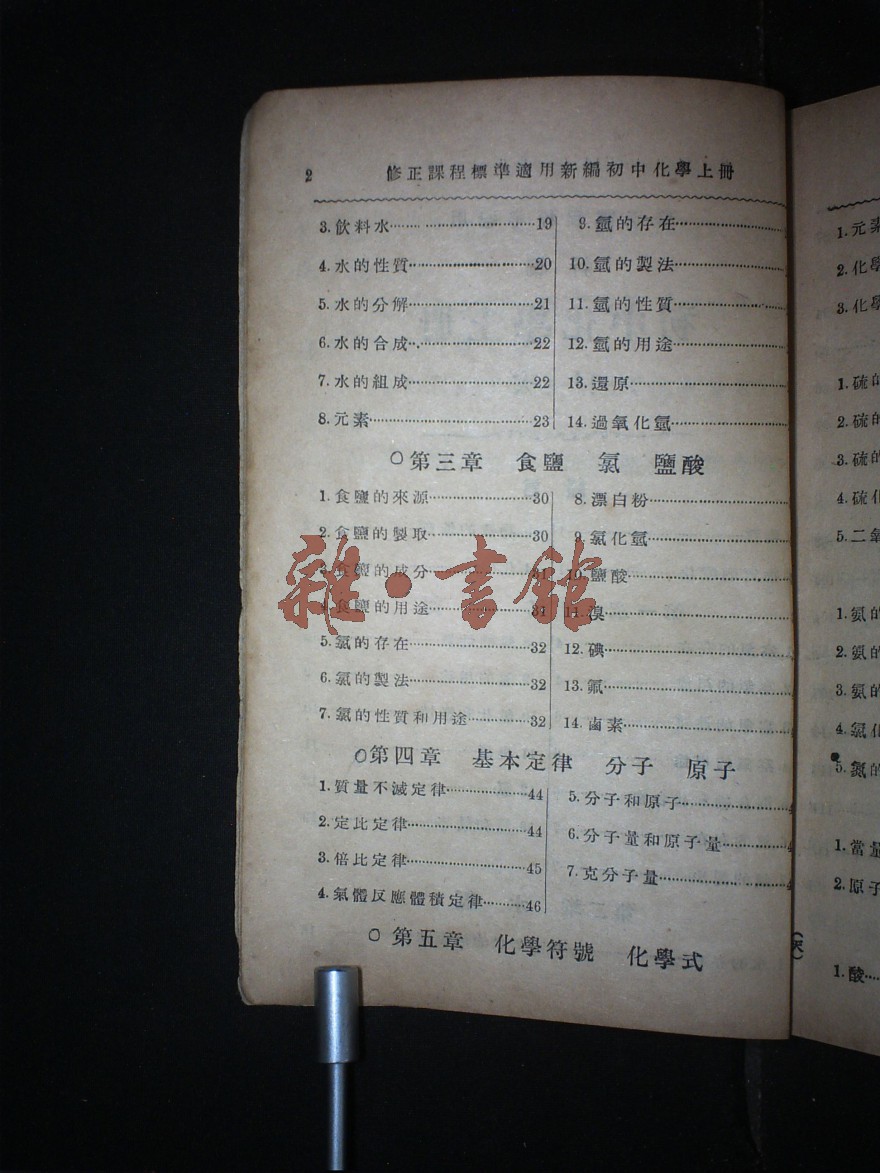 2 修正課程標準適用新編初中化學上冊
3. 飲料水……………19
4. 水的性質……………20
5. 水的分解……………21
6. 水的合成……………22
7. 水的組成……………22
8. 元素……………23
9. 氫的存在……………
10. 氫的製法……………
11. 氫的性質……………
12. 氫的用途……………
13. 還原……………
14. 過氧化氫……………
○第三章 食鹽 氯 鹽酸
1. 食鹽的來源……………30
2. 食鹽的製取……………30
3. 食鹽的成分……………31
4. 食鹽的用途……………31
5. 氯的存在……………32
6. 氯的製法……………32
7. 氯的性質和用途……………32
8. 漂白粉……………
9. 氯化氫……………
10. 鹽酸……………
11. 溴……………
12. 碘……………
13. 氟……………
14. 鹵素……………
雜·書館
○第四章 基本定律 分子 原子
1. 質量不滅定律……………44
2. 定比定律……………44
3. 倍比定律……………45
4. 氣體反應體積定律…………46
5. 分子和原子……………4
6. 分子量和原子量…………4
7. 克分子量……………4
○第五章 化學符號 化學式
1. 元素
2. 化學
3. 化學
1. 硫的
2. 硫的
3. 硫的
4. 硫化
5. 二氧
1. 氨的
2. 氨的
3. 氨的
4. 氯化
5. 氮的
1. 當量
2. 原子
1. 酸……